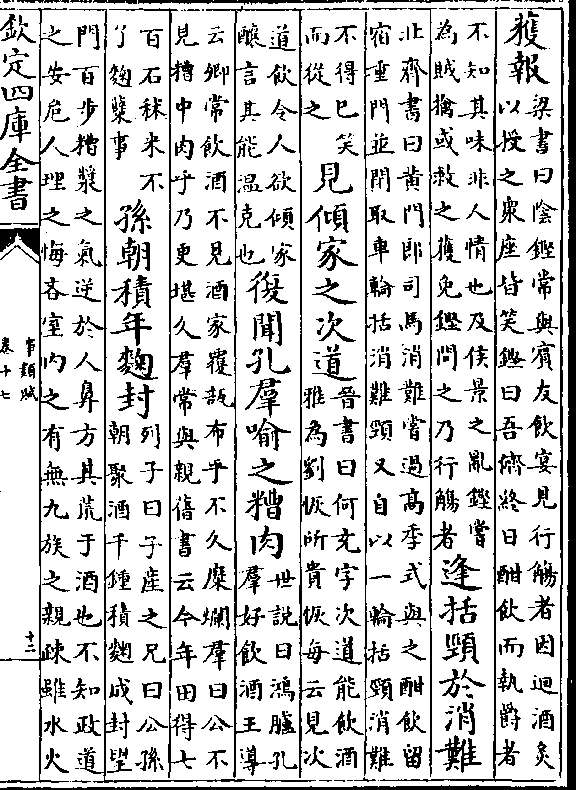 獲報
梁書曰陰鏗常與賓友飲宴見行觴者因迴酒炙
以授之衆座皆笑鏗曰吾儕終日酣飲而執爵者
不知其味非人情也及侯景之亂鏗嘗
為賊擒或救之獲免鏗問之乃行觴者
逢括頸於消難
北齊書曰黄門郎司馬消難嘗過高季式與之酣飲留
宿重門並閉取車輪括消難頸又自以一輪括頸消難
不得已笑
而從之
見傾家之次道
晉書曰何充字次道能飲酒
雅為劉惔所貴惔每云見次
道飲令人欲傾家
釀言其能温克也
復聞孔羣喻之糟肉
世説曰鴻臚孔
羣好飲酒王導
云卿常飲酒不見酒家覆瓿布乎不久糜爛羣曰公不
見糟中肉乎乃更堪久羣常與親舊書云今年田得七
百石秫米不
了麴糵事
孫朝積年麴封
列子曰子産之兄曰公孫
朝聚酒千鍾積麴成封望
門百步糟漿之氣逆於人鼻方其荒于酒也不知政道
之安危人理之悔吝室内之有無九族之親疎雖水火
欽定四庫全書
事類賦
卷十七
十二